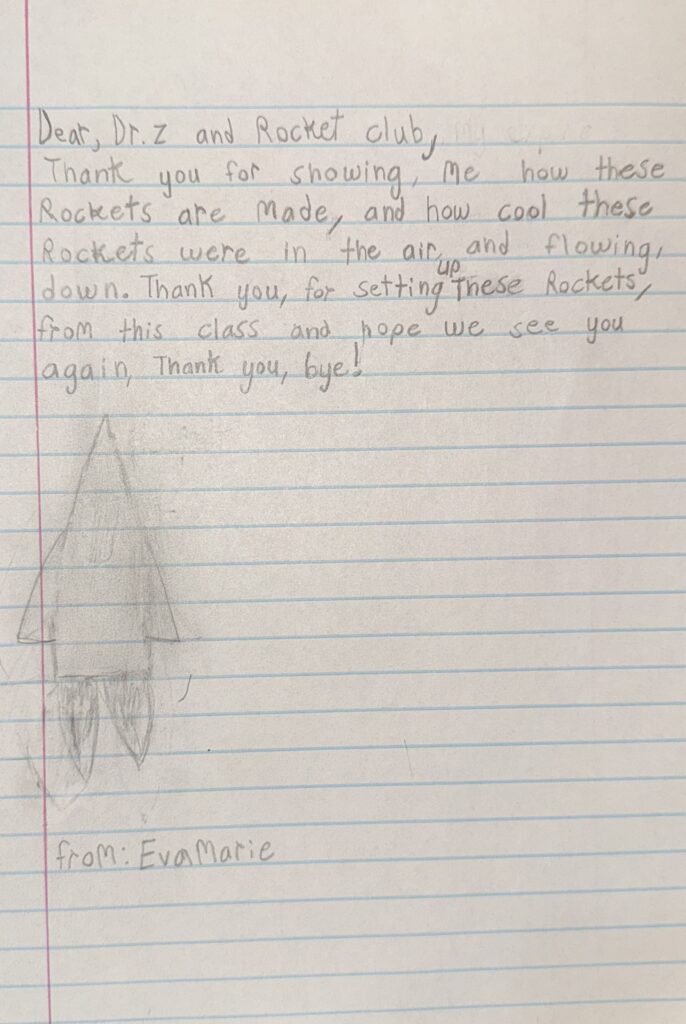 Dear, Dr. Z and Rocket club,
Thank you for showing, Me how these
Rockets are Made, and how cool these
Rockets were in the air, and flowing,
down. Thank you, for setting up These Rockets,
from this class and hope we see you
again, Thank you, bye!
from: EvaMarie